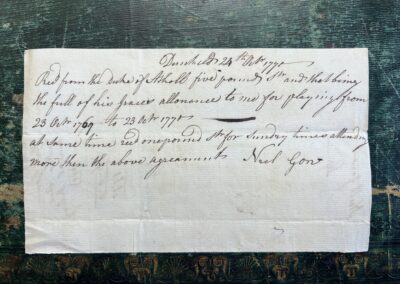 Dunkeld 24th Octr 1770
Recd from the Duke of Atholl five pounds str and that being
the full of his graces allowance to me for playing from
23 Octr 1769 to 23 Octr 1770
at same time recd one pound str for Sunday times attending
more then the above agreament Neil Gow